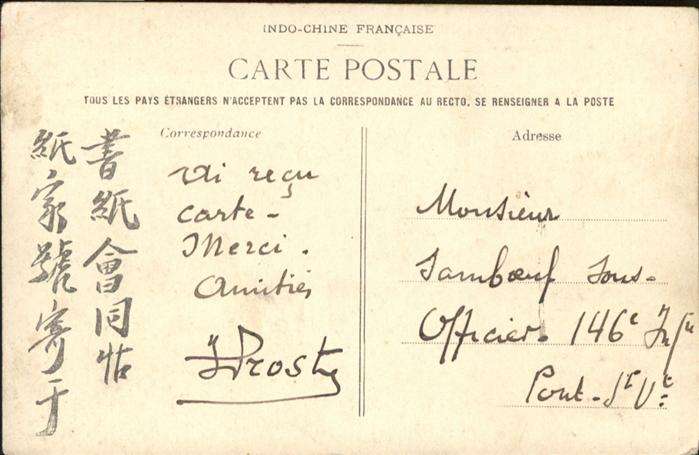 INDO-CHINE FRANÇAISE
CARTE POSTALE
TOUS LES PAYS ÉTRANGERS N'ACCEPTENT PAS LA CORRESPONDANCE AU RECTO, SE RENSEIGNER A LA POSTE
書紙會同
紙家號寄于
Correspondance
Ai reçu
carte -
Merci.
Amitiés
Prost
Adresse
Monsieur
Jambœuf Sous-
Officier. 146e Inf
Pont-St Vt